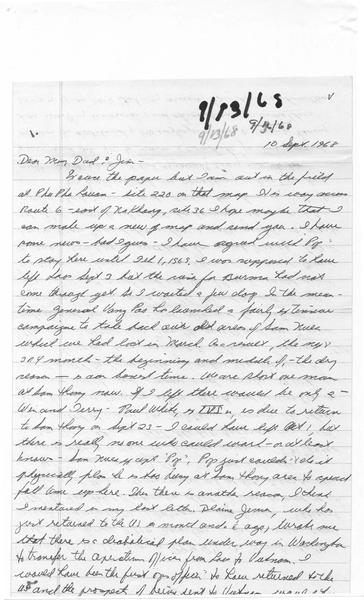 9/13/68
9/13/68 9/14/68
1.
10 Sept. 1968
Dear Mom, Dad & Jim -
Excuse the paper but I am out in the field
at Phu Pha - site 220 on that map. It is way across
Route 6 - east of Na Khang, site 36. I hope maybe that I
can make up a new map and send you. I have
some news - bad I guess - I have agreed with "Pop"
to stay here until Feb 1, 1969. I was supposed to have
left Sept 3 but the visa for Burma had not
come through yet so I waited a few days. In the mean-
time General Vang Pao launched a fairly extensive
campaign to take back our old areas of Sam Neua
which we had lost in March. As a result, the next
3 or 4 month - the beginning and middle of the dry
season - is our time. We are short one man
at Sam Thong now. If I left there would be only 2 -
Win and Terry. Paul White, is due to return
to Sam Thong on Sept 23 - I could have left Oct 1, but
there is really no one who could want - or at least
know - Sam Neua except "Pop". Pop just couldn't do it
physically plus he is too busy at Sam Thong area to spend
full time up here. Then there is another reason, I think
I mentioned in my last letter. Blaine Jensen, who has
just returned to the US a month and ago, wrote me
that there is a plan under way in Washington
to transfer the operations officers from Laos to Vietnam. I
would have been the first ops officer to have returned to the
US and the prospect of being sent to Vietnam